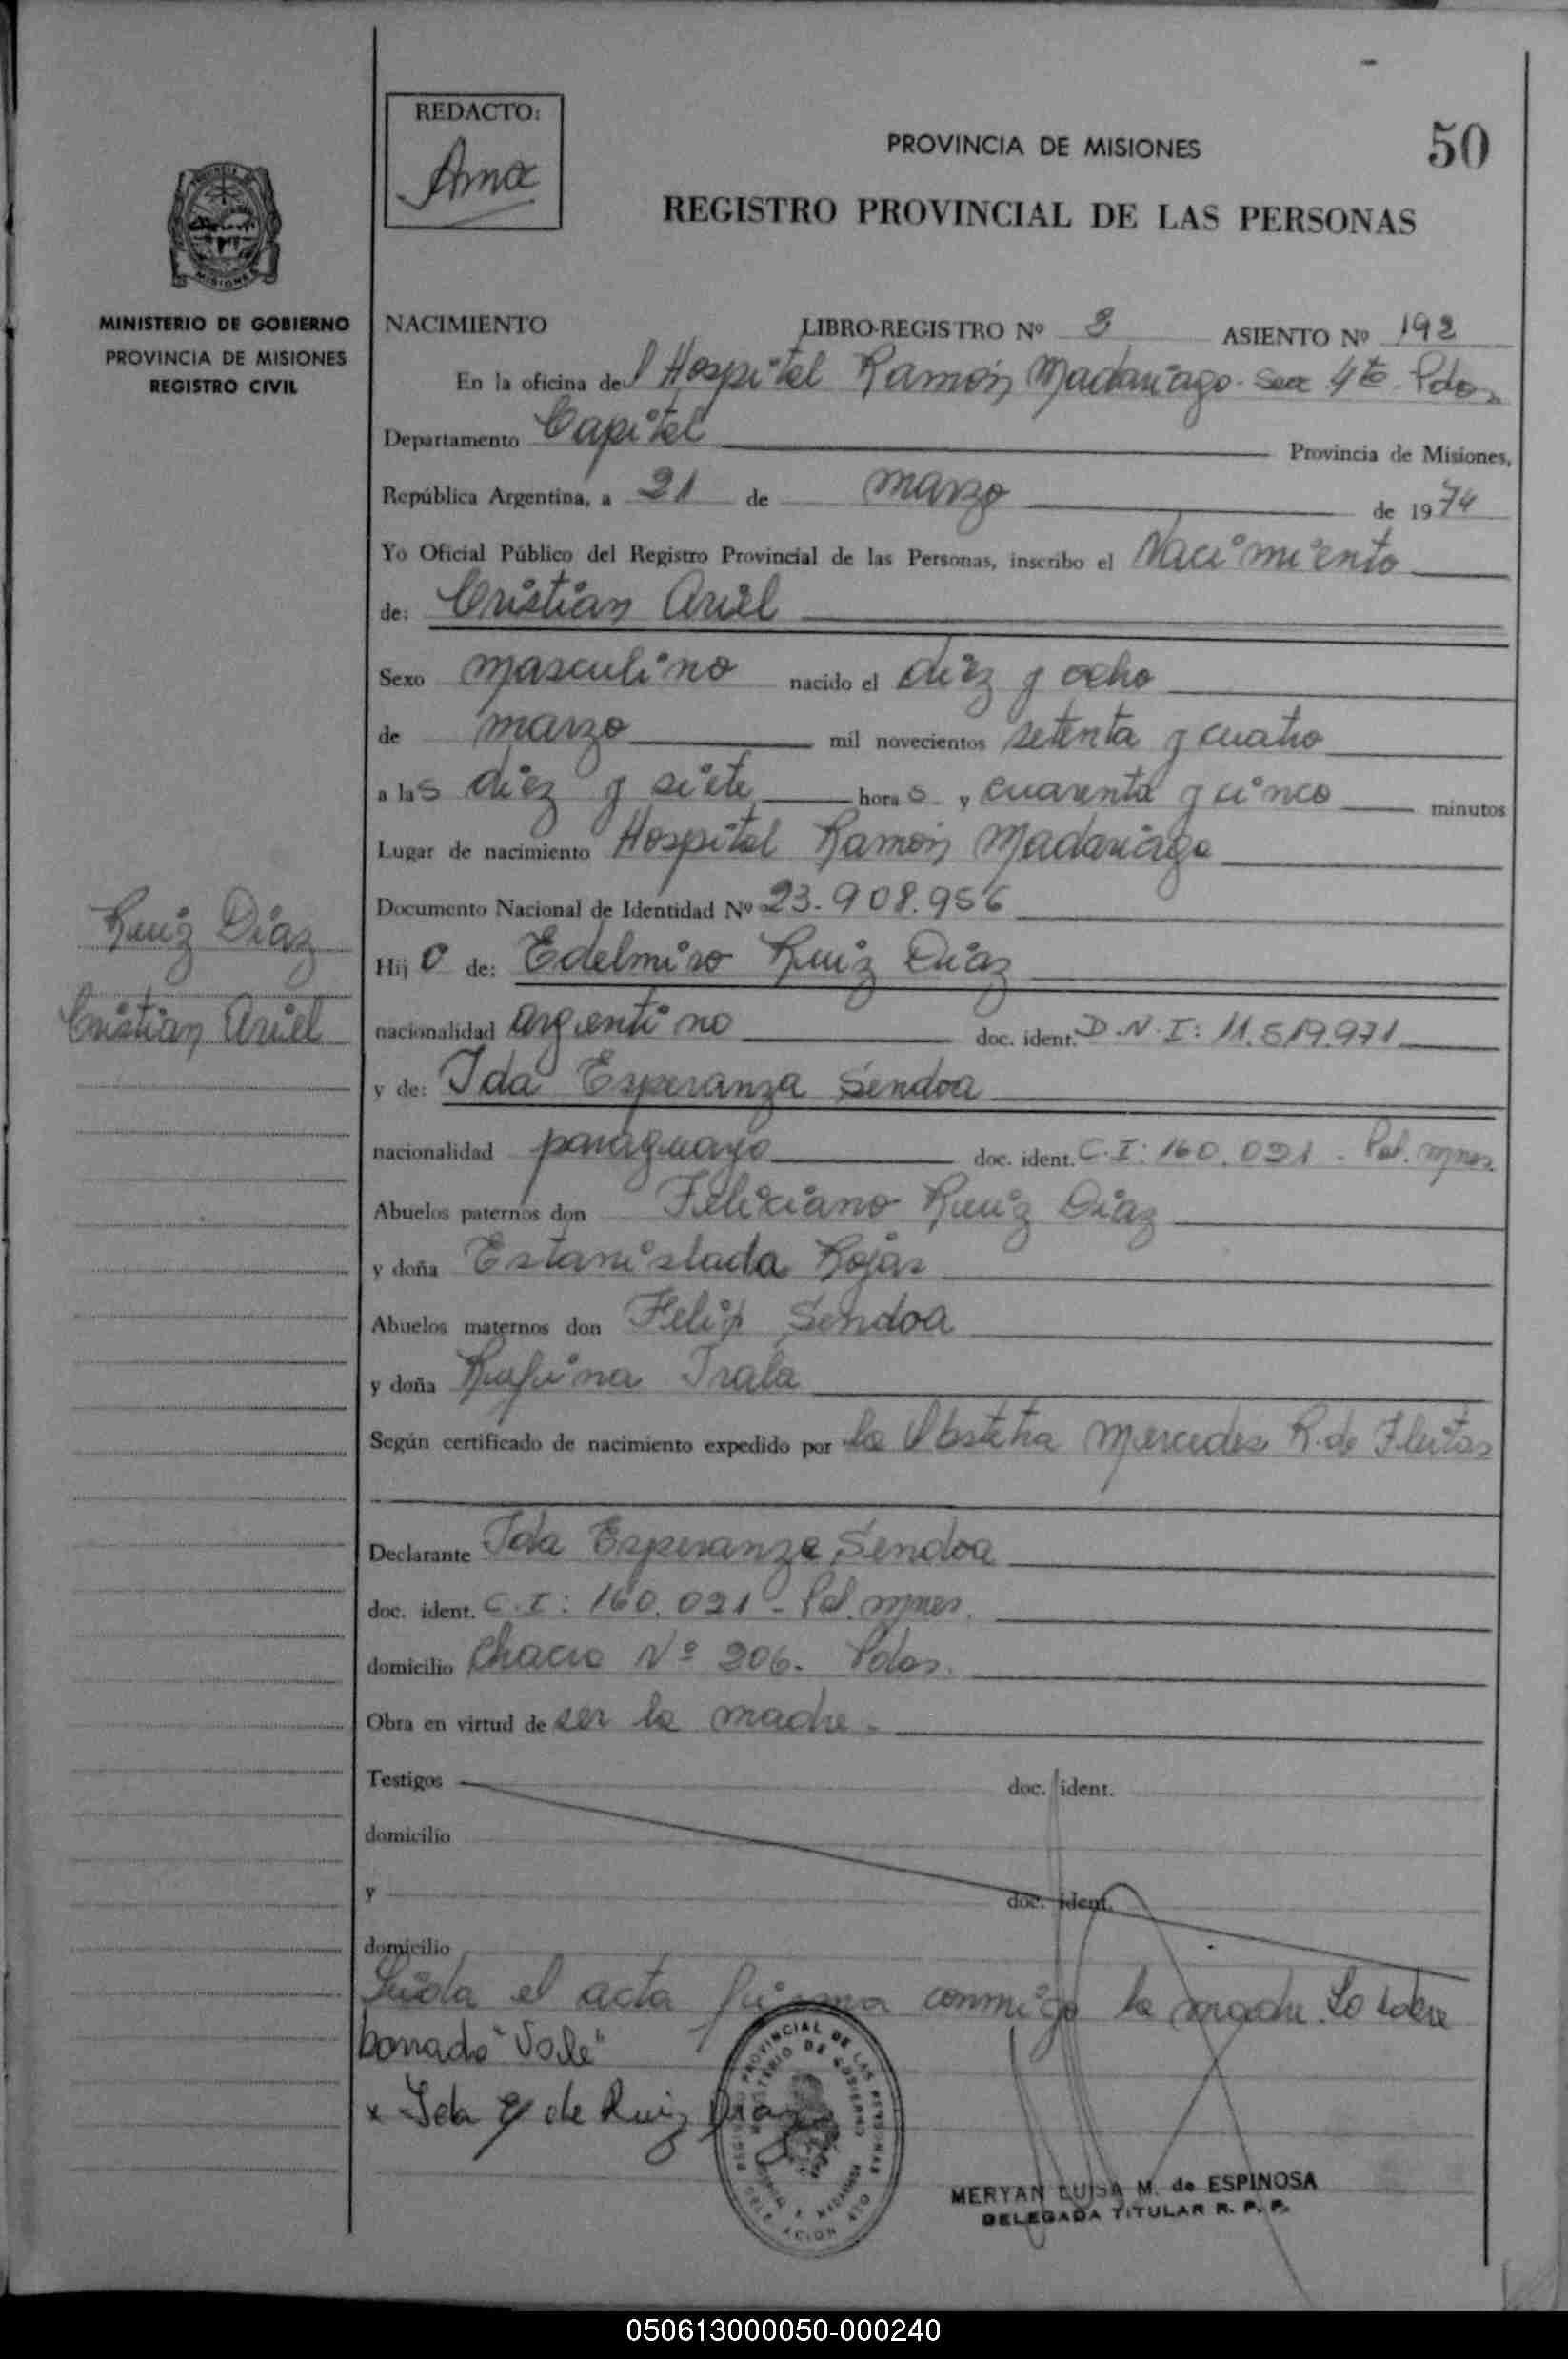 REDACTO:
Ama
PROVINCIA DE MISIONES
50
REGISTRO PROVINCIAL DE LAS PERSONAS
MINISTERIO DE GOBIERNO
PROVINCIA DE MISIONES
REGISTRO CIVIL
NACIMIENTO LIBRO-REGISTRO Nº 3 ASIENTO Nº 192
En la oficina del Hospital Ramón Madariaga 4ta Pdas
Departamento Capital Provincia de Misiones,
República Argentina, a 21 de marzo de 1974
Yo Oficial Público del Registro Provincial de las Personas, inscribo el Nacimiento
de: Cristian Ariel
Sexo masculino nacido el diez y ocho
de marzo mil novecientos setenta y cuatro
a las diez y siete horas y cuarenta y cinco minutos
Lugar de nacimiento Hospital Ramón Madariaga
Documento Nacional de Identidad Nº 23.908.956
Ruiz Diaz
Cristian Ariel
Hijo de: Edelmiro Ruiz Diaz
nacionalidad argentino doc. ident. D.N.I: 11.519.971
y de: Ida Esperanza Sendoa
nacionalidad paraguaya doc. ident. C.I: 160.021 - Pol. Mnes.
Abuelos paternos don Feliciano Ruiz Diaz
y doña Estanislada Rojas
Abuelos maternos don Felip Sendoa
y doña Rufina Irala
Según certificado de nacimiento expedido por la Obstetra Mercedes R. de Fleitas
Declarante Ida Esperanza Sendoa
doc. ident. C.I: 160.021 - Pol. Mnes.
domicilio Chacra Nº 206. Pdas.
Obra en virtud de ser la madre.
Testigos doc. ident.
domicilio
y doc. ident.
domicilio
Leida el acta firma conmigo la madre. Lo sobre
borrado "Vale"
x Ida de Ruiz Diaz
MERYAN LUISA M. de ESPINOSA
DELEGADA TITULAR R. P. P.
050613000050-000240